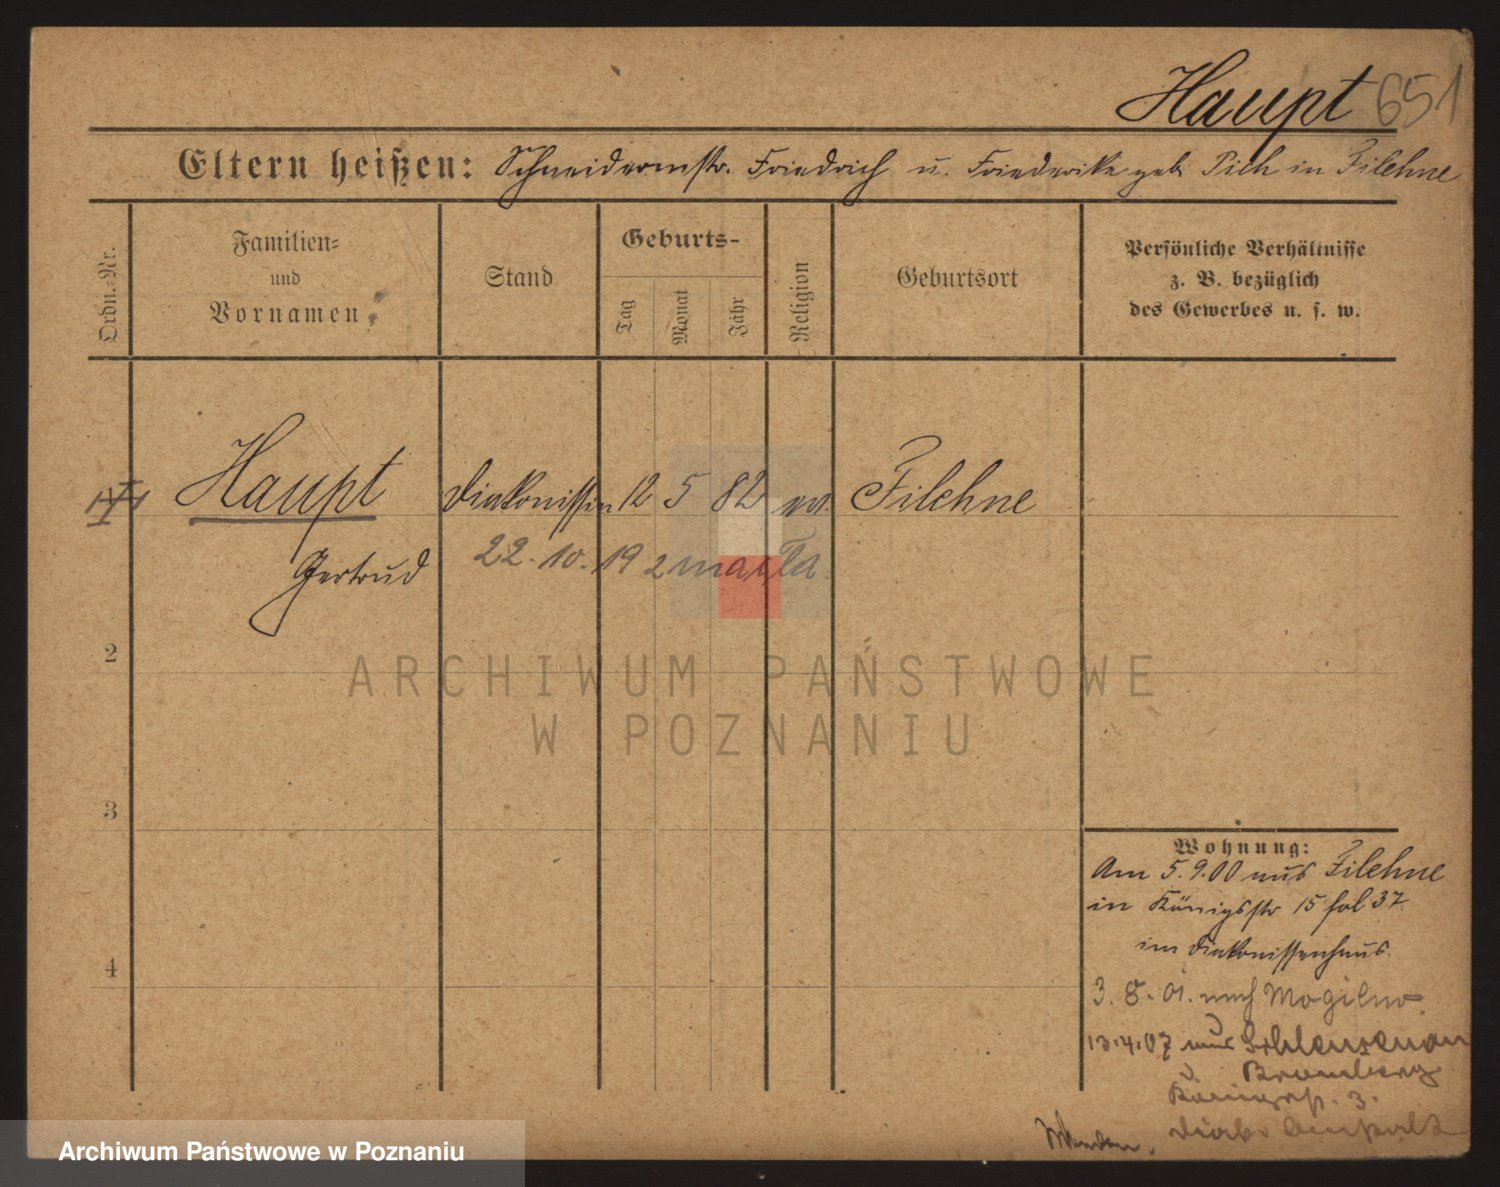 Haupt 651
Eltern heißen: Schneidermstr. Friedrich u. Friederike geb Pich in Filehne
Ordn.-Nr.
Familien-
und
Vornamen
Stand
Geburts-
Tag
Monat
Jahr
Religion
Geburtsort
Persönliche Verhältnisse
z. B. bezüglich
des Gewerbes u. s. w.
Haupt Diakonissin 12 5 82 ev. Filehne
Gertrud
22. 10. 19
2
3
4
ARCHIWUM PAŃSTWOWE
W POZNANIU
Wohnung:
Am 5.9.00 aus Filehne
in Königsstr 15 fol 37
im Diakonissenhaus
3. 8. 01. nach Mogilno
13.4.07 aus Schleusenau
Bromberg
Königstr. 3.
Wenden.
Archiwum Państwowe w Poznaniu